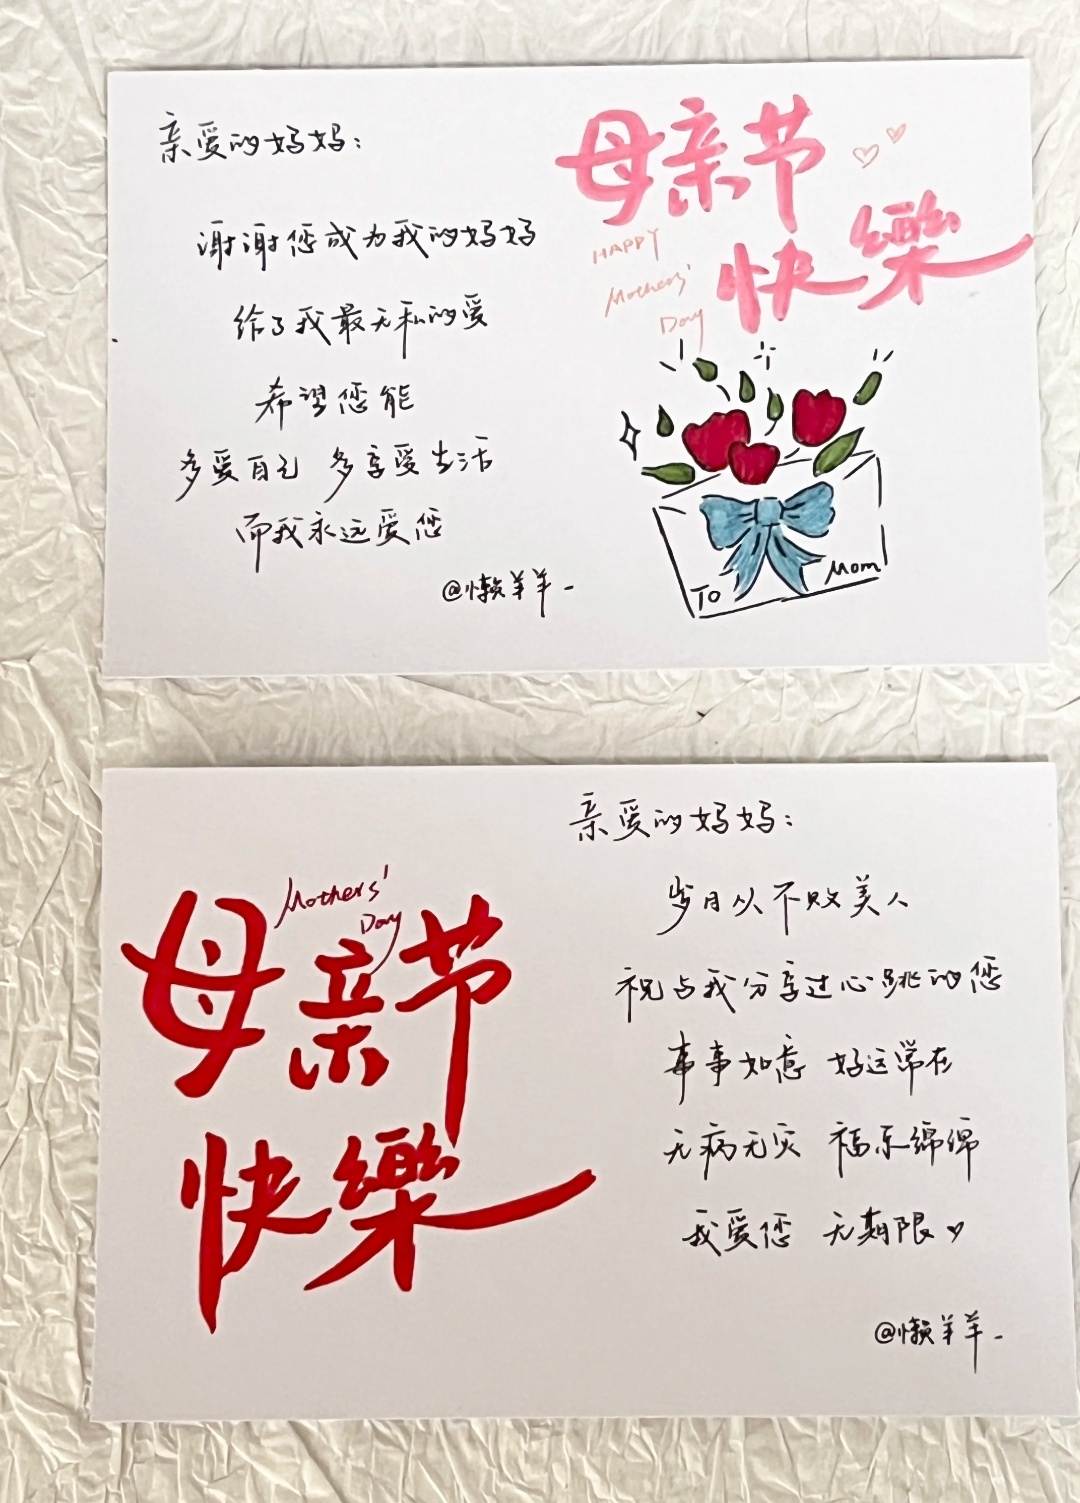 亲爱的妈妈：
谢谢您成为我的妈妈
给了我最无私的爱
希望您能
多爱自己 多享受生活
而我永远爱您
@懒羊羊-
母亲节
快樂
HAPPY
Mothers'
Day
To Mom
Mothers'
Day
母亲节
快樂
亲爱的妈妈：
岁月从不败美人
祝与我分享过心跳的您
事事如意 好运常在
无病无灾 福乐绵绵
我爱您 无期限
@懒羊羊-